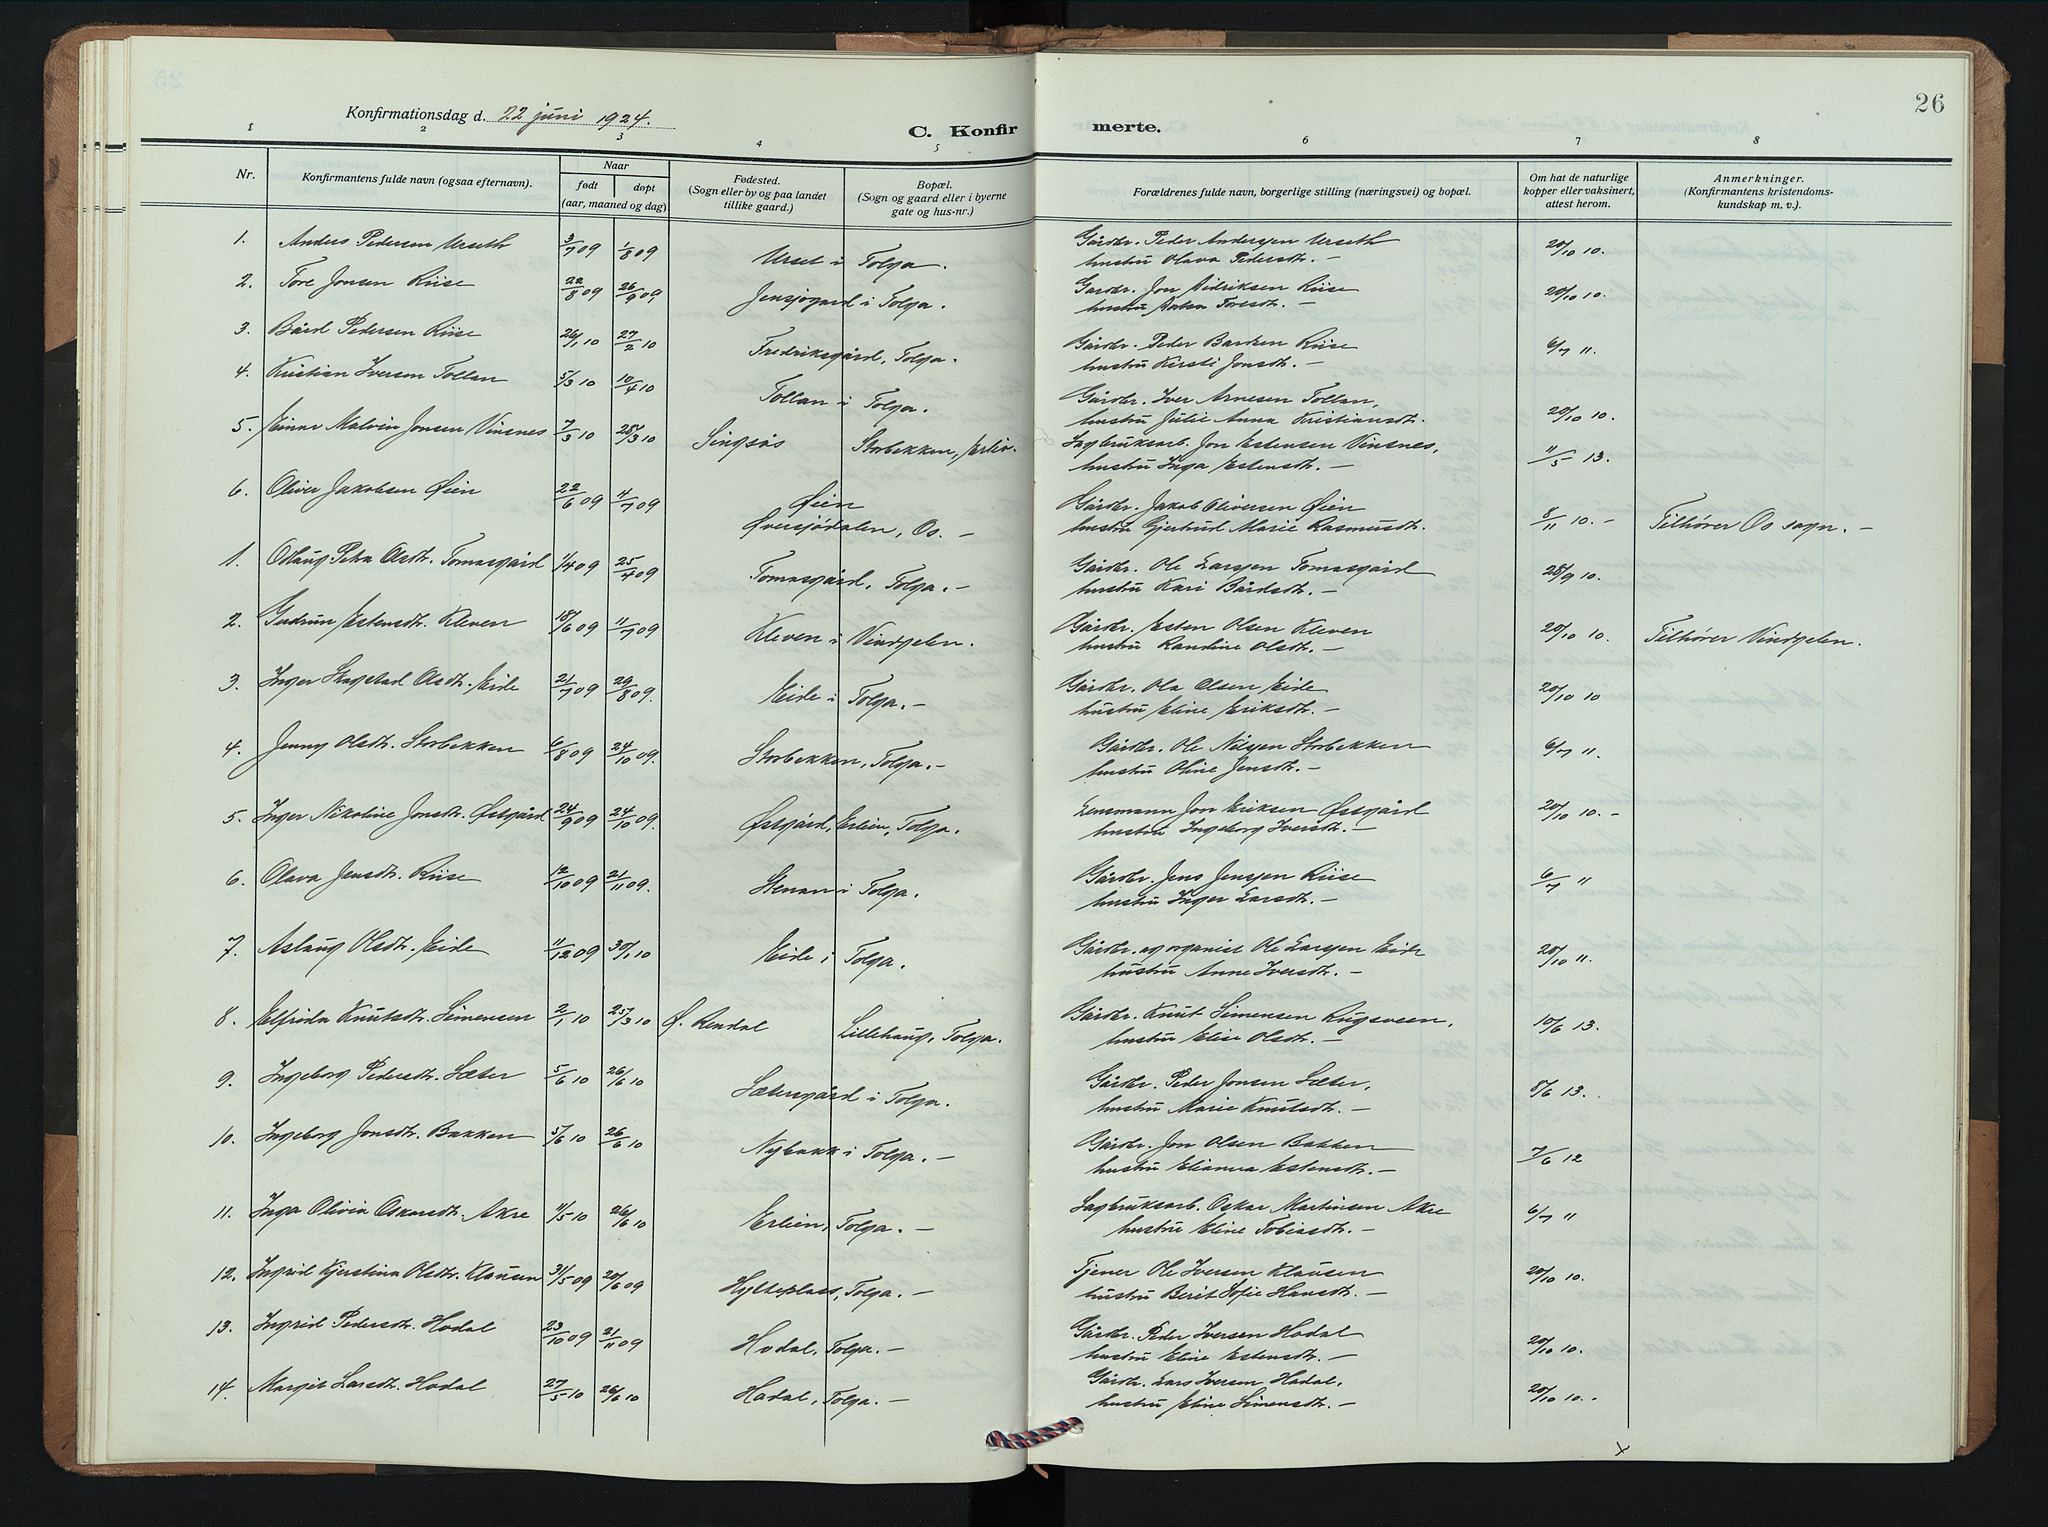 26
Konfirmationsdag d. 22 juni 1924.
C. Konfirmerte.
1 2 3 4 5 6 7 8
Nr.
Konfirmantens fulde navn (ogsaa efternavn).
Naar
født døpt
(aar, maaned og dag)
Fødested.
(Sogn eller by og paa landet
tillike gaard.)
Bopæl.
(Sogn og gaard eller i byerne
gate og hus-nr.)
Forældrenes fulde navn, borgerlige stilling (næringsvei) og bopæl.
Om hat de naturlige
kopper eller vaksinert,
attest herom.
Anmerkninger.
(Konfirmantens kristendoms-
kundskap m. v.).
1. Anders Pedersen Urseth 3/7 09 1/8 09 Urset i Tolga. Gårdbr. Peder Andersen Urseth 20/10 10.
hustru Olava Pedersdtr. —
2. Tore Jonsen Riise 22/8 09 26/9 09 Jensjogard i Tolga. Gardbr. Jon Didriksen Riise 20/10 10.
hustru Toresdtr. —
3. Bård Pedersen Riise 26/1 10 27/2 10 Fredriksgård, Tolga. Gårdbr. Peder Bardsen Riise 6/7 11.
hustru Kirsti Jonsdtr. —
4. Kristian Iversen Tollan 5/3 10 10/4 10 Tollan i Tolga. Gårdbr. Iver Arnesen Tollan, 20/10 10.
hustru Julie Anna Kristiansdtr. —
5. Einar Malvin Jonsen Vinsnes 7/3 10 28/3 10 Singsås Storbekken, Erlie. Sagbruksarb. Jon Estensen Vinsnes, 11/5 13.
hustru Inga Estensdtr. —
6. Oliver Jakobsen Øien 22/6 09 4/7 09 Øien Gårdbr. Jakob Oliversen Øien 8/11 10. — Tilhører Os sogn. —
Øversjødalen, Os. — hustru Gjertrud Marie Rasmusdtr.
1. Oslaug Petra Olsdtr. Tomasgård 1/4 09 25/4 09 Tomasgård, Tolga. — Gårdbr. Ole Larsen Tomasgård 28/9 10.
hustru Kari Bårdsdtr. —
2. Gudrun Estensdtr. Kleven 18/6 09 11/7 09 Kleven i Vindgelen. Gårdbr. Esten Olsen Kleven 20/10 10. Tilhører Vindgelen.
hustru Randine Olsdtr. —
3. Inger Skogstad Olsdtr. Eide 21/7 09 29/8 09. Eide i Tolga. — Gårdbr. Ola Olsen Eide 20/10 10
hustru Eline Eriksdtr. —
4. Jenny Olsdtr. Storbekken 6/8 09 24/10 09. Storbekken, Tolga. — Gårdbr. Ole Nilsen Storbekken 6/7 11.
hustru Oline Jensdtr. —
5. Inger Nikoline Jonsdtr. Østgård 24/9 09 24/10 09. Østgård, Erlien, Tolga. Lensmann Jon Eriksen Østgård 20/10 10. —
hustru Ingeborg Iversdtr. —
6. Olava Jensdtr. Riise 12/10 09 21/11 09. Stenan i Tolga. Gårdbr. Jens Jensen Riise 6/7 "
hustru Inger Larsdtr. —
7. Aslaug Olsdtr. Eide 11/12 09 30/1 10 Eide i Tolga. Gårdbr. og organist Ole Larsen Eide 20/10 11.
hustru Anne Iversdtr. —
8. Elfrida Knutsdtr. Simensen 2/1 10 25/3 10 Ø. Rendal Lillehaug, Tolga. Gårdbr. Knut Simensen Rugsveen, 10/6 13.
hustru Elise Olsdtr. —
9. Ingeborg Pedersdtr. Sæter 5/6 10 26/6 10 Sætersgård i Tolga. Gårdbr. Peder Jonsen Sæter, 8/6 13.
hustru Marie Knutsdtr. —
10. Ingeborg Jonsdtr. Bakken 5/6 10 26/6 10 Nybakk i Tolga. — Gårdbr. Jon Olsen Bakken 7/6 12
hustru Elianna Estensdtr. —
11. Inga Olivia Oskarsdtr. Akre 11/5 10 26/6 10 Erlien, Tolga. — Sagbruksarb. Oskar Martinsen Akre 6/7 "
hustru Eline Tobiasdtr. —
12. Ingrid Kjerstina Olsdtr. Klausen 31/5 09 20/6 09 Hylteplass, Tolga. — Tjener Ole Iversen Klausen 20/10 10.
hustru Berit Sofie Hansdtr. —
13. Ingrid Pedersdtr. Hodal 23/10 09 21/11 09 Hodal, Tolga. — Gårdbr. Peder Iversen Hodal 20/10 10.
hustru Eline Estensdtr. —
14. Margit Larsdtr. Hodal 27/5 10 26/6 10 Hodal, Tolga. — Gårdbr. Lars Iversen Hodal, 20/10 10.
hustru Eline Simensdtr. —